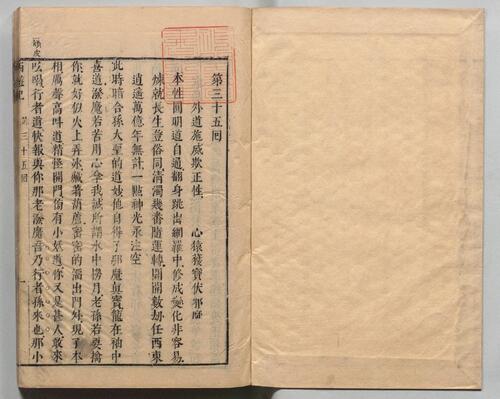 第三十五回
外道施威欺正性　心猿獲寶伏邪魔
本性圓明道自通翻身跳出網羅中修成變化非容易
煉就長生豈俗同清濁幾番隨運轉闢開數刼任西東
逍遙萬億年無計一點神光永注空
此時暗合孫大聖的道妙他自得了那魔眞寶籠在袖中
喜道潑魔若若用心拿我誠所謂水中撈月老孫若要擒
你就好似火上弄冰藏著葫蘆密密的溜出門外現了本
相厲聲高叫道精怪開門傍有小妖道你又是甚人敢來
吆喝行者道快報與你那老潑魔吾乃行者孫來也那小
西遊記
第三十五回
一